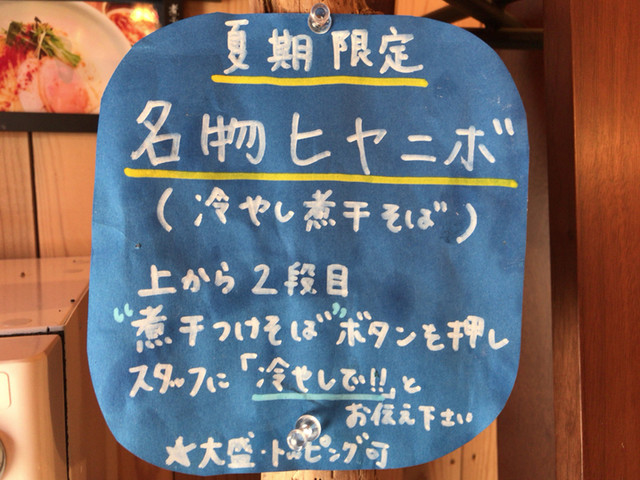 夏期限定
名物ヒヤニボ
(冷やし煮干そば)
上から2段目
“煮干つけそば”ボタンを押し
スタッフに「冷やしで!!」と
お伝え下さい
★大盛・トッピング可